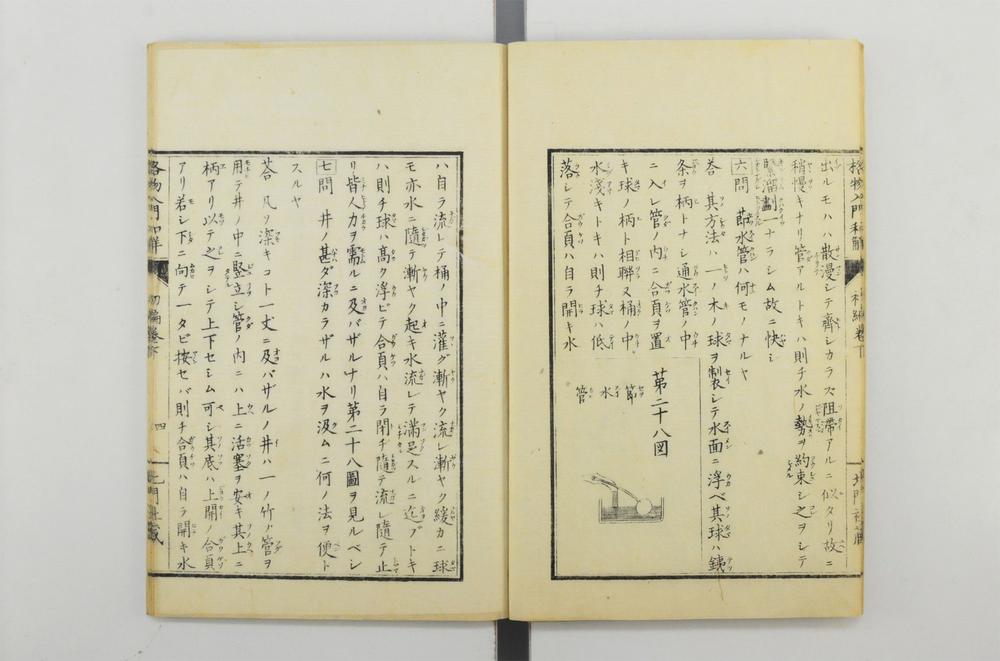 格物入門和解
出ルモハハ散漫シテ齊シカラス阻帶アルニ似タリ故ニ
稍慢キナリ管アルトキハ則チ水ノ勢ヲ約束シ之ヲシテ
緊溜劃一ナラシム故ニ快シ
六問 節水管ハ何モノナルヤ
荅 其方法ハ一ノ木ノ球ヲ製シテ水面ニ浮ベ其球ハ銕
条ヲ柄トナシ通水管ノ中
ニ入レ管ノ内ニ合頁ヲ置
キ球ノ柄ト相聯ヌ桶ノ中
水淺キトキハ則チ球ハ低
落シテ合頁ハ自ラ開キ水
第二十八図
節水管
ハ自ラ流レテ桶ノ中ニ灌グ漸ヤク流レ漸ヤク緩カニ球
モ亦水ニ隨テ漸ヤク起キ水流レテ滿足スルニ迄ブトキ
ハ則チ球ハ高ク浮ビテ合頁ハ自ラ閉ヂ隨テ流レ隨テ止
リ皆人力ヲ需ルニ及バザルナリ第二十八圖ヲ見ルベシ
七問 井ノ甚ダ深カラザルハ水ヲ汲ムニ何ノ法ヲ便ト
スルヤ
荅 凡ソ深キコト一丈ニ及バザルノ井ハ一ノ竹ノ管ヲ
用テ井ノ中ニ竪立シ管ノ内ニハ上ニ活塞ヲ安キ其上ニ
柄アリ以テ之ヲシテ上下セシム可シ其底ハ上開ノ合頁
アリ若シ下ニ向テ一タビ按セバ則チ合頁ハ自ラ開キ水
格物入門和解 初編卷下 四 北門社藏